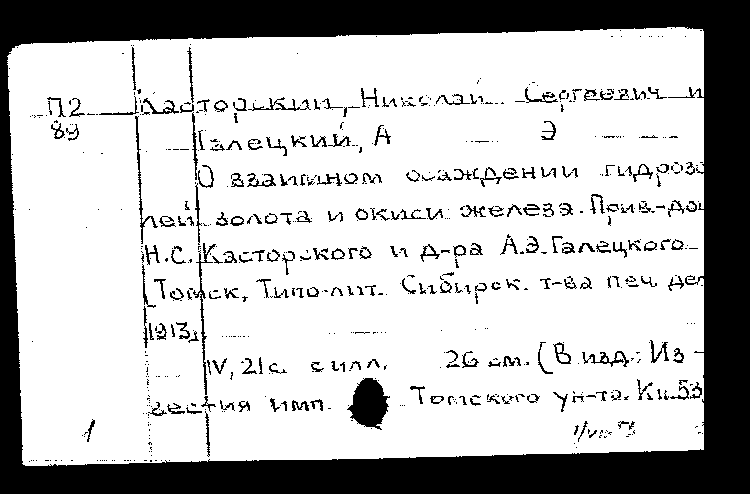 П2 Касторский, Николай Сергеевич и
89 Галецкий, А Э
О взаимном осаждении гидрозо
лей золота и окиси железа. Прив.-до
Н.С. Касторского и д-ра А.Э. Галецкого
(Томск, Типо-лит. Сибирск. т-ва печ. дел
1913).
IV, 21с. с илл. 26 см. (В изд.: Из-
вестия имп. Томского ун-та. Кн. 53
1